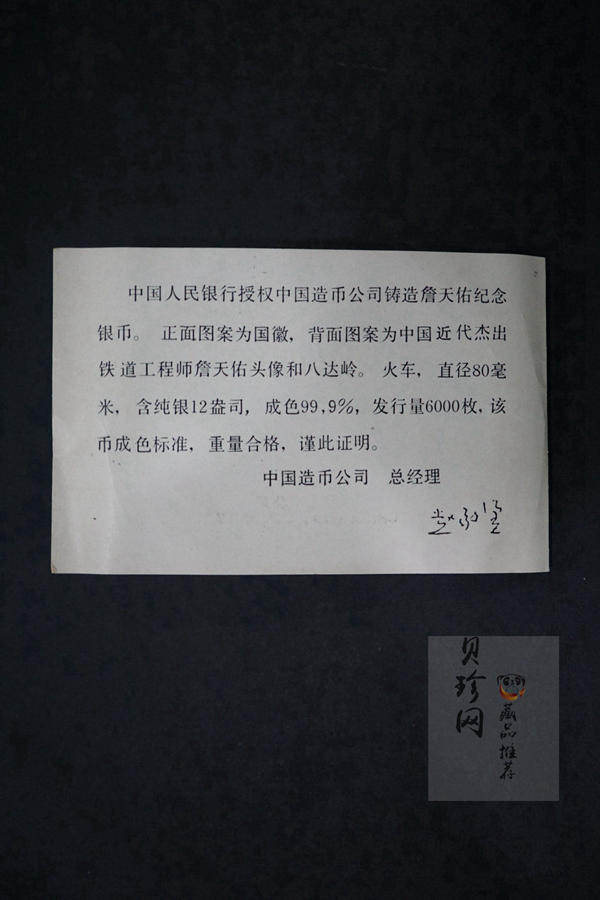 中国人民银行授权中国造币公司铸造詹天佑纪念
银币。 正面图案为国徽，背面图案为中国近代杰出
铁道工程师詹天佑头像和八达岭。 火车，直径80毫
米，含纯银12盎司，成色99,9%，发行量6000枚，该
币成色标准，重量合格，谨此证明。
中国造币公司 总经理
贝珍网
藏品推荐